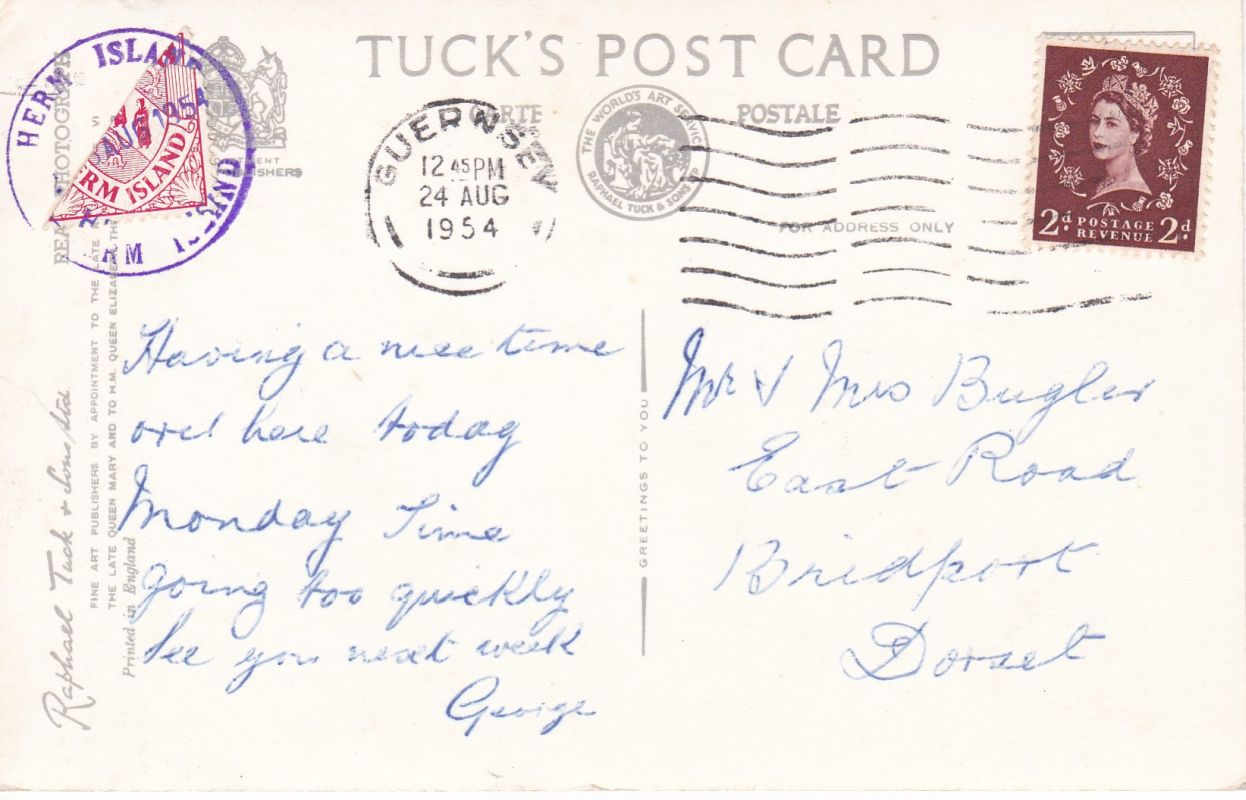 TUCK'S POST CARD
CARTE POSTALE
THE WORLD'S ART SERVICE
RAPHAEL TUCK & SONS LTD
FOR ADDRESS ONLY
HERM ISLAND
AUG 1954
ERM ISLAND
GUERNSEY
12 45 PM
24 AUG
1954
2d POSTAGE REVENUE 2d
Having a nice time
over here today
Monday Time
going too quickly
See you next week
George
GREETINGS TO YOU
Mr & Mrs Bugler
East Road
Bridport
Dorset
REAL PHOTOGRAPH
Raphael Tuck & Sons Ltd
FINE ART PUBLISHERS BY APPOINTMENT TO THE LATE
THE LATE QUEEN MARY AND TO H.M. QUEEN ELIZABETH, THE
Printed in England